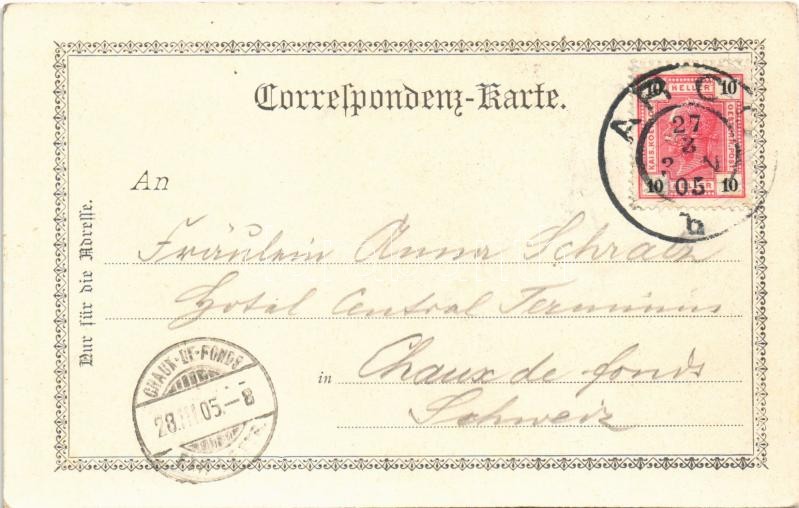 Correſpondenz-Karte.
10 HELLER 10
KAIS. KOEN
OESTERR. POST
10 HELLER 10
ARCO
27
3
05
b
An
Fräulein Anna Schratz
Hotel Central Terminus
in Chaux de fonds
Schweiz
Nur für die Adreſſe.
CHAUX-DE-FONDS
28.III.05.-8